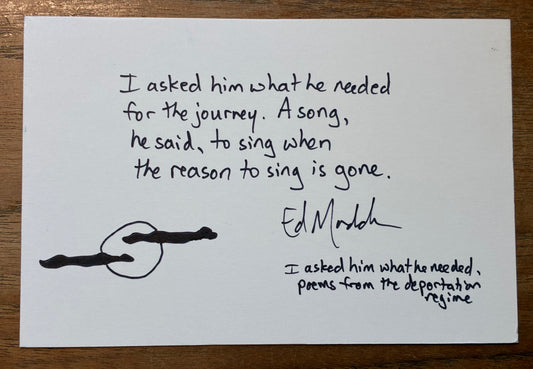 I asked him what he needed
for the journey. A song,
he said, to sing when
the reason to sing is gone.
Ed Madden
I asked him what he needed,
poems from the deportation
regime